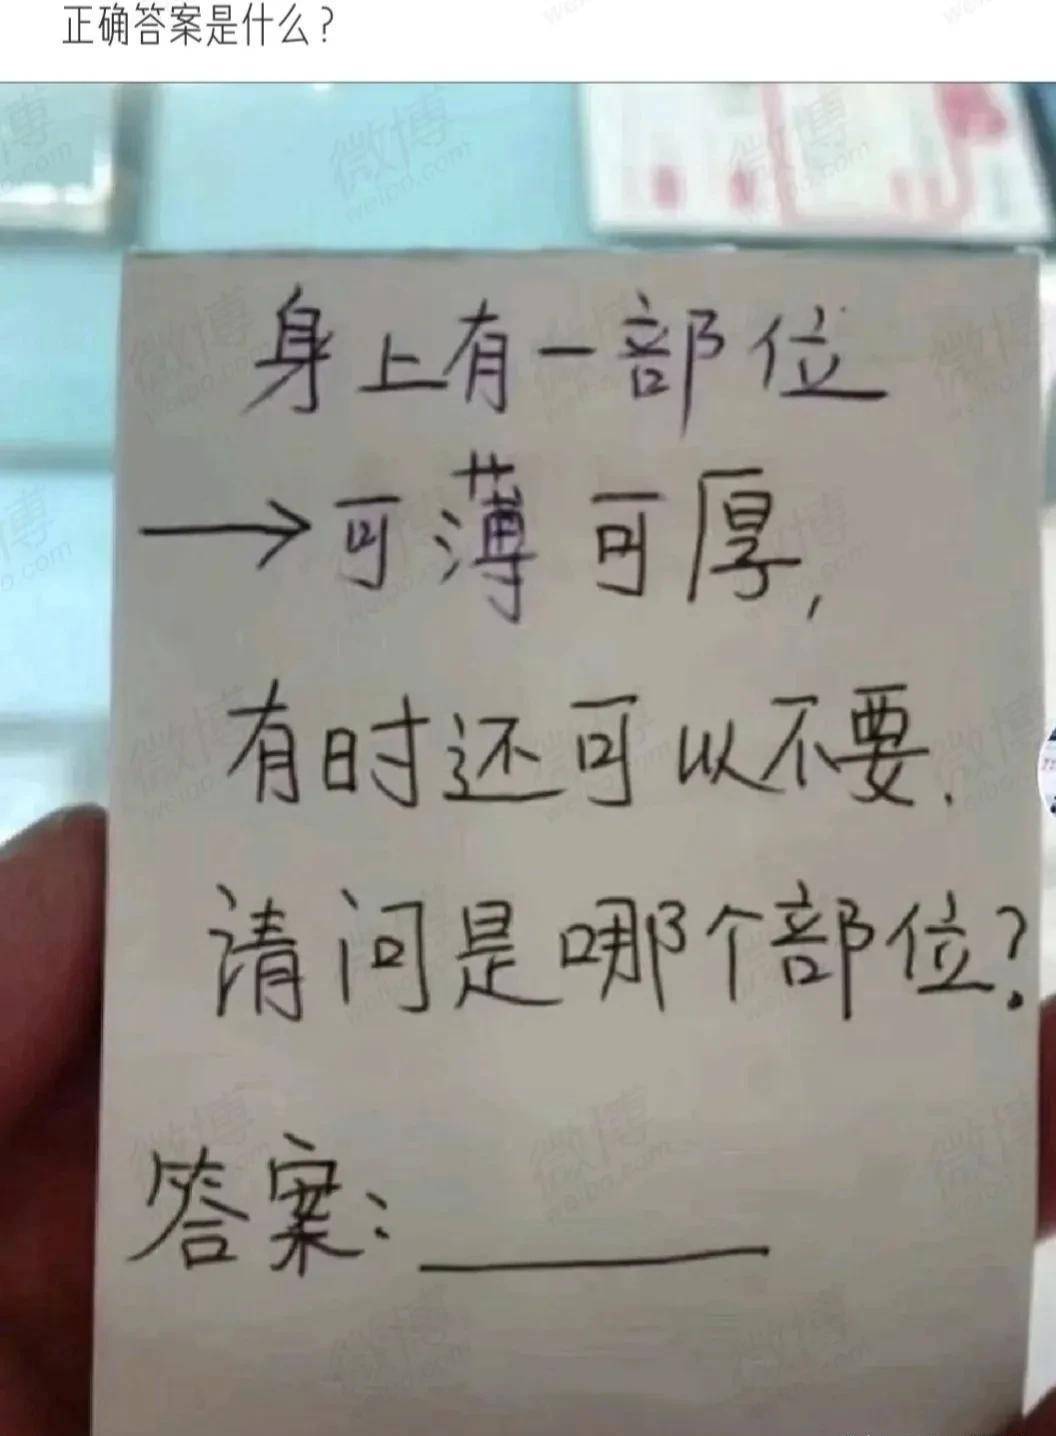 正确答案是什么？
身上有一部位
→可薄可厚,
有时还可以不要.
请问是哪个部位?
答案:
微博
weibo.com